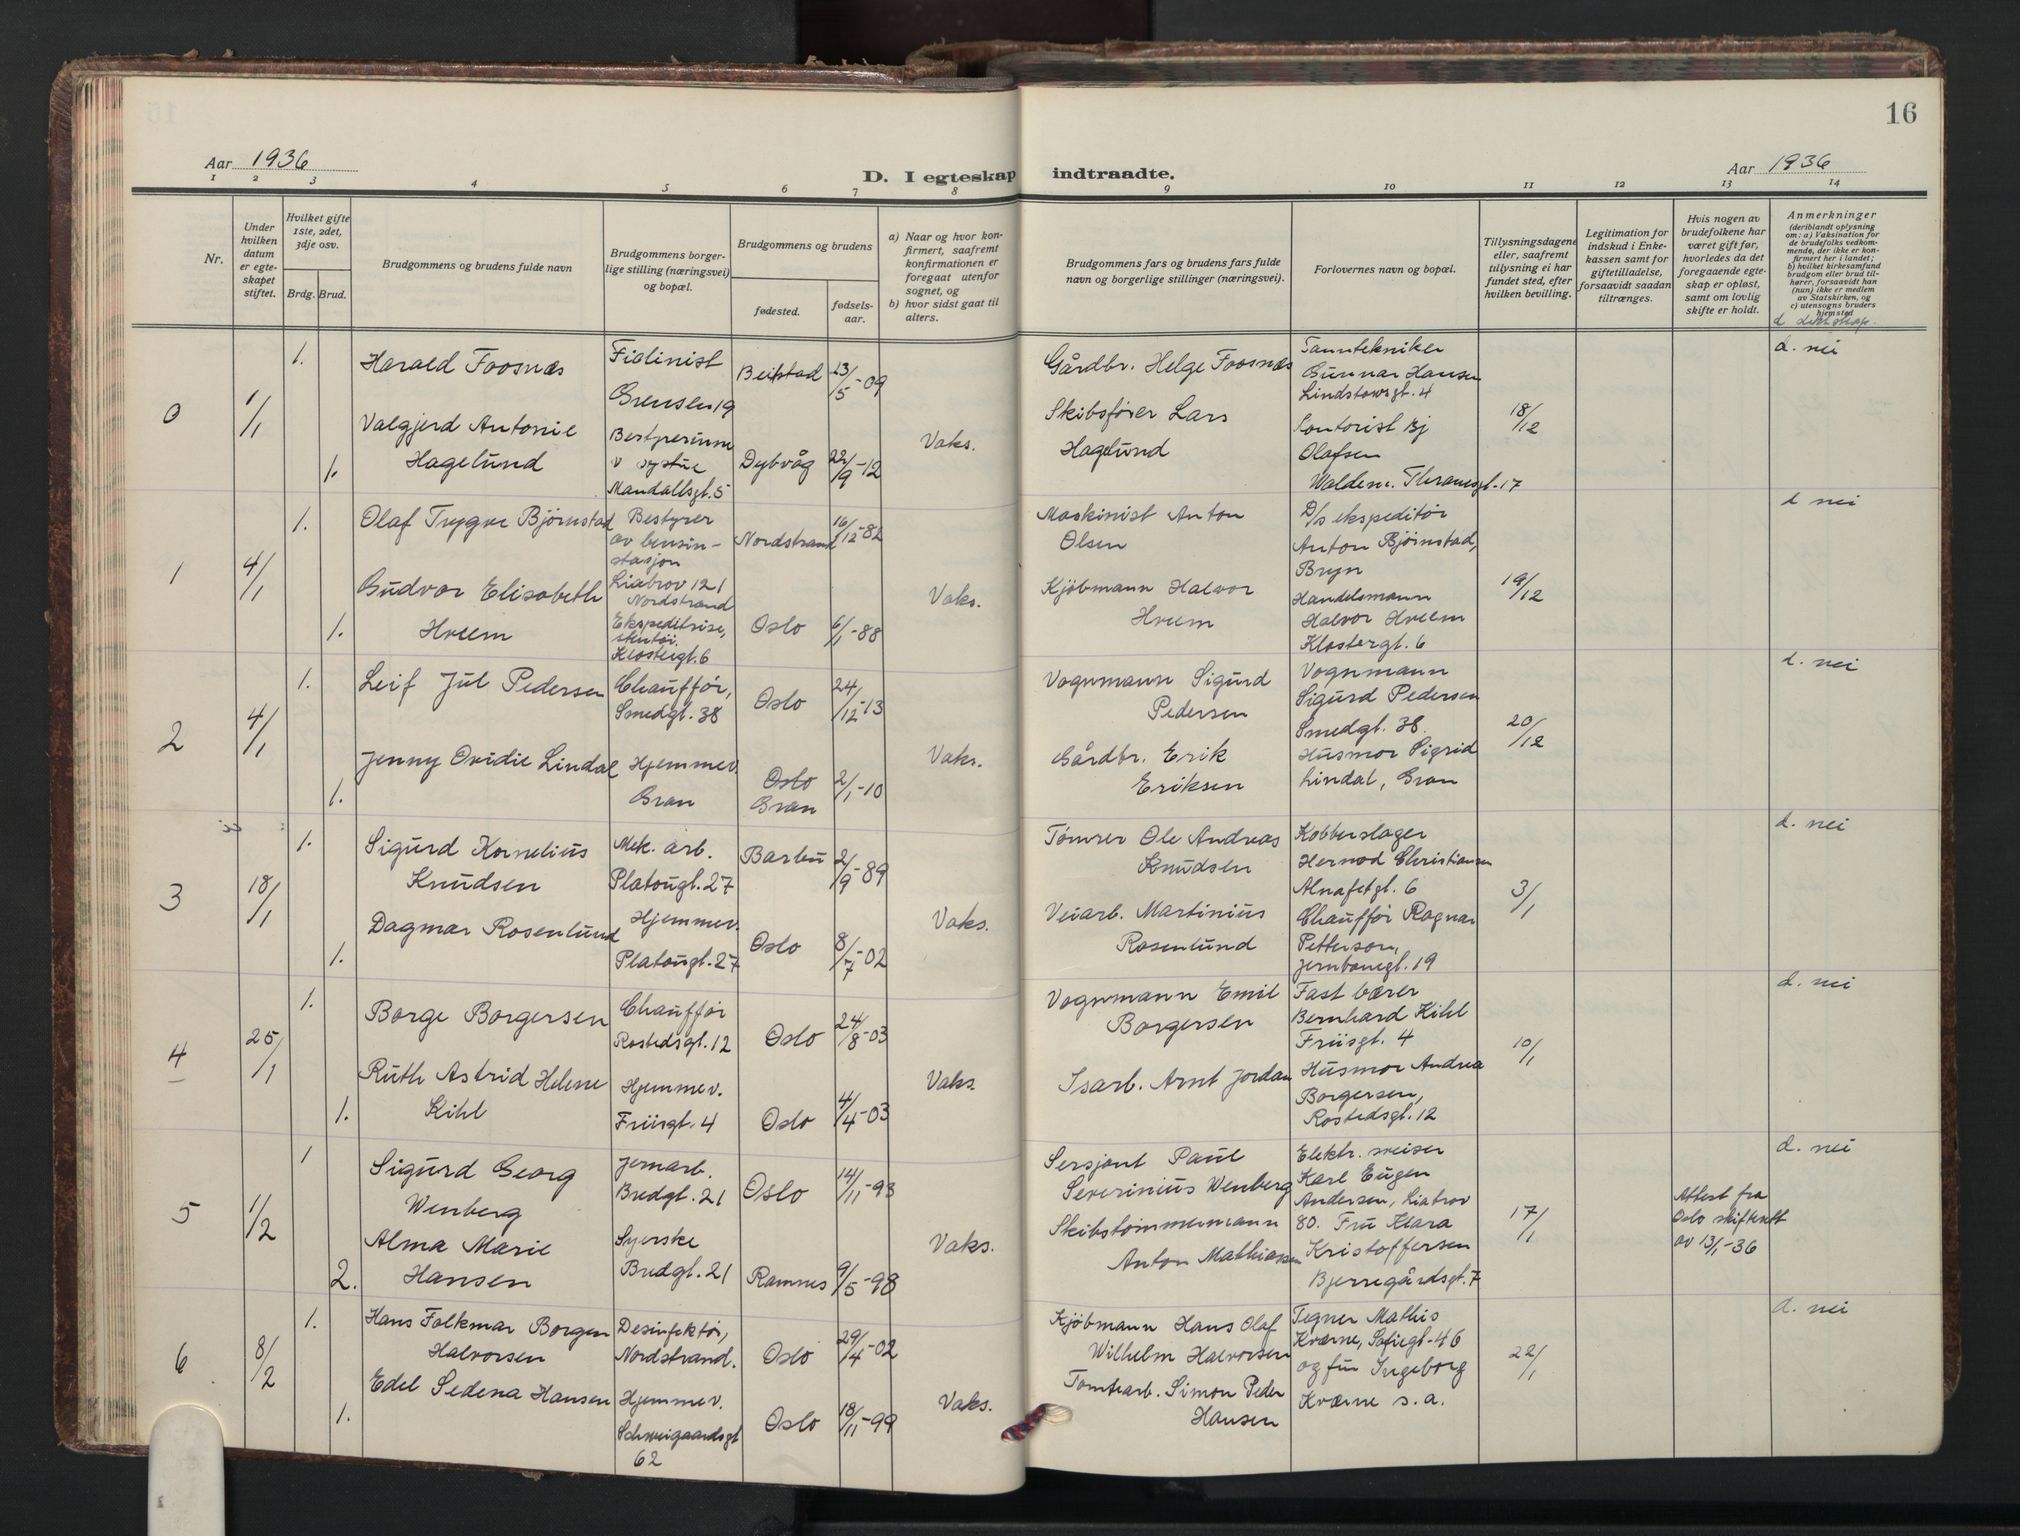 16
Aar 1936
D. I egteskap indtraadte.
Aar 1936
1 2 3 4 5 6 7 8 9 10 11 12 13 14
Nr.
Under hvilken datum er egteskapet stiftet.
Hvilket gifte 1ste, 2det, 3dje osv.
Brdg. Brud.
Brudgommens og brudens fulde navn
Brudgommens borgerlige stilling (næringsvei) og bopæl.
Brudgommens og brudens
fødested.
fødselsaar.
a) Naar og hvor konfirmert, saafremt konfirmationen er foregaat utenfor sognet, og
b) hvor sidst gaat til alters.
Brudgommens fars og brudens fars fulde navn og borgerlige stillinger (næringsvei).
Forlovernes navn og bopæl.
Tillysningsdagene eller, saafremt tillysning ei har fundet sted, efter hvilken bevilling.
Legitimation for indskud i Enkekassen samt for giftetilladelse, forsaavidt saadan tiltrænges.
Hvis nogen av brudefolkene har været gift før, hvorledes da det foregaaende egteskap er opløst, samt om lovlig skifte er holdt.
Anmerkninger (deriblandt oplysning om: a) Vaksination for de brudefolks vedkommende, der ikke er konfirmert her i landet; b) hvilket kirkesamfund brudgom eller brud tilhører, forsaavidt han (hun) ikke er medlem av Statskirken, og c) utensogns bruders hjemsted
0
1/1
1.
Harald Foosnæs
Fiolinist
Grensen 19
Beitstad
23/5-09
Gårdbr. Helge Foosnæs
Tanntekniker
Gunnar Hansen
Lindstowsgt. 4
d. nei
1.
Valgjerd Antonie
Hagelund
Bestyrerinne
v systue
Mandallsgt. 5
Dybvåg
22/9-12
Vaks.
Skibsfører Lars
Hagelund
Kontorist Bj
Olafsen
Waldem. Thranesgt. 17
18/12
1
4/1
1.
Olaf Trygve Bjørnstad
Bestyrer
av bensin-
stasjon
Liabrov 121
Nordstrand
Nordstrand
16/12-82
Maskinist Anton
Olsen
D/s ekspeditør
Anton Bjørnstad,
Bryn
d nei
1.
Gudvor Elisabeth
Hveem
Ekspeditrise,
skotøi.
Klostergt. 6
Oslo
6/1-88
Vaks.
Kjøbmann Halvor
Hveem
Handelsmann
Halvor Hveem
Klostergt. 6
19/12
2
4/1
1.
Leif Jul Pedersen
Chauffør,
Smedgt. 38
Oslo
24/12-13
Vognmann Sigurd
Pedersen
Vognmann
Sigurd Pedersen
Smedgt. 38.
d. nei
1.
Jenny Ovidie Lindal
Hjemmev.
Gran
Oslo
Gran
2/1-10
Vaks.
Gårdbr. Erik
Eriksen
Husmor Sigrid
Lindal, Gran
20/12
3
18/1
1.
Sigurd Kornelius
Knudsen
Mek. arb.
Platougt. 27
Barbu
2/9-89
Tømrer Ole Andreas
Knudsen
Kobberslager
Hernod Christiansen
Alnafetgt. 6
d. nei
1.
Dagmar Rosenlund
Hjemmev.
Platougt. 27
Oslo
8/7-02
Vaks.
Veiarb. Martinius
Rosenlund
Chauffør Ragnar
Petterson,
Jernbanegt. 19
3/1
4
25/1
1.
Borge Borgersen
Chauffør
Rostedsgt. 12
Oslo
24/8-03
Vognmann Emil
Borgersen
Fast bærer
Bernhard Kihl
Friisgt. 4
d. nei
1.
Ruth Astrid Helene
Kihl
Hjemmev.
Friisgt. 4
Oslo
4/4-03
Vaks.
Isarb. Arnt Jordan
Husmor Andrea
Borgersen,
Rostedsgt. 12
10/1
5
1/2
1
Sigurd Georg
Wenberg
Jernarb.
Bredgt. 21
Oslo
14/11-93
Sersjant Paul
Severinius Wenberg
Elektr. sveiser
Karl Eugen
Andersen, Liabrov
80. Fru Klara
Kristoffersen
Bjerregårdsgt. 7
d. nei
2.
Alma Marie
Hansen
Syerske
Bredgt. 21
Ramnes
9/5-98
Vaks.
Skibstømmermann
Anton Mathiasen
17/1
Attest fra
Oslo skifterett
av 13/1-36
6
8/2
1.
Hans Folkmar Borgen
Halvorsen
Desinfektør,
Nordstrand.
Oslo
29/4-02
Kjøbmann Hans Olaf
Wilhelm Halvorsen
Tegner Mathis
Kværne, Sofiegt. 46
og fru Ingeborg
Kværne s. a.
d. nei
1.
Edel Sedena Hansen
Hjemmev.
Schweigaardsgt
62
Oslo
18/11-99
Vaks.
Tomtearb. Simon Peder
Hansen
22/1